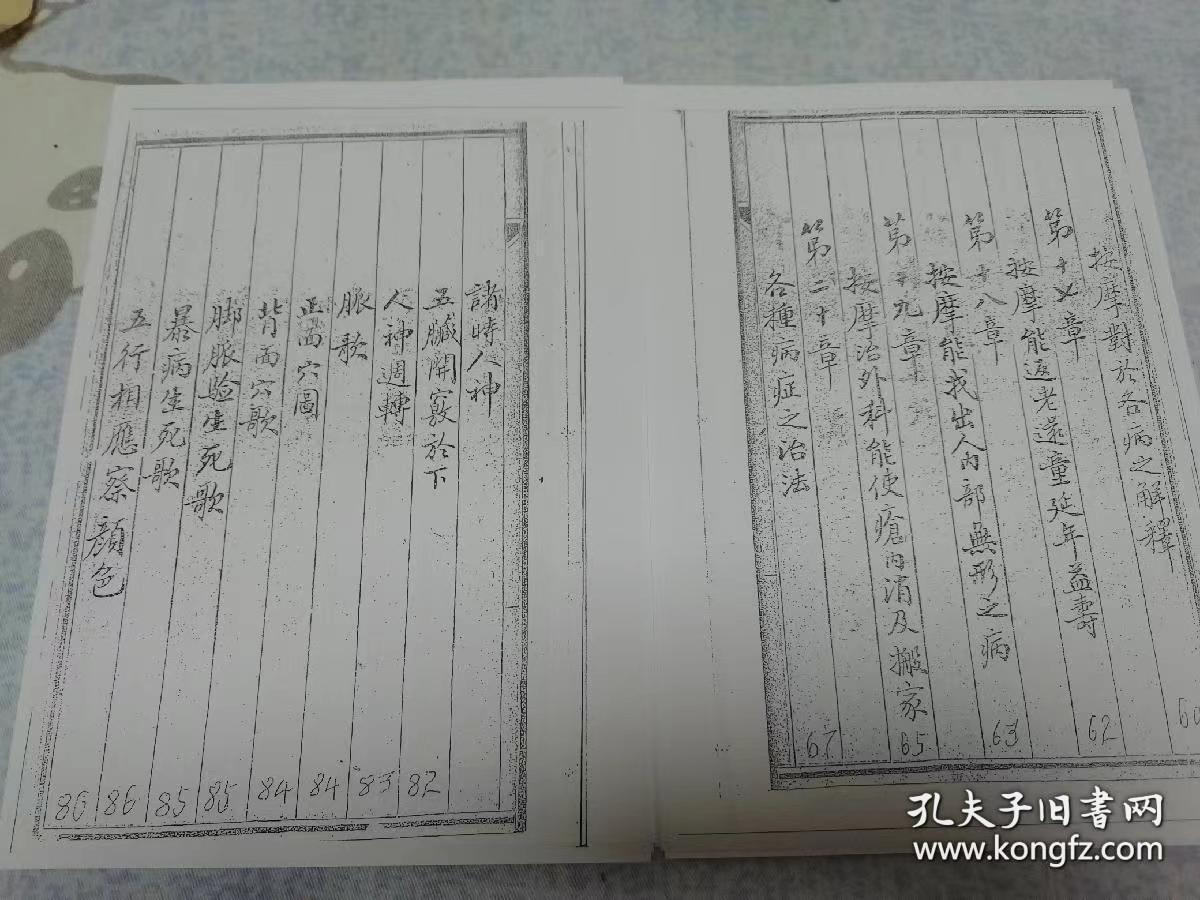 按摩對於各病之解釋
60
第十七章
按摩能返老還童延年益壽
62
第十八章
按摩能找出人內部無形之病
63
第十九章
按摩治外科能使瘡內消及搬家
65
第二十章
各種病症之治法
67
諸時人神
五臟開竅於下
82
人神週轉
83
脈歌
84
正面穴圖
84
背面穴歌
85
脚脈驗生死歌
85
暴病生死歌
86
五行相應察顏色
86
孔夫子旧书网
www.kongfz.com